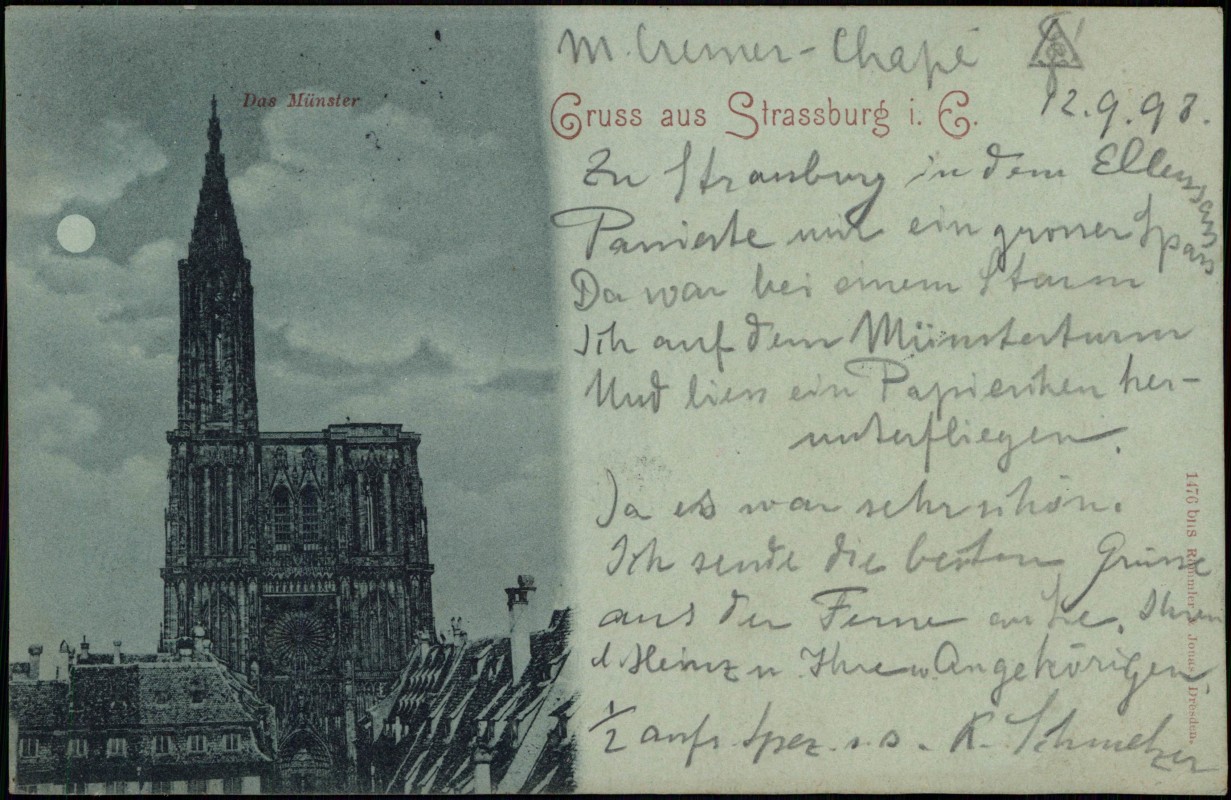 M. Cremer-Chapé
Das Münster
Gruss aus Strassburg i. E.
12.9.98.
Zu Strassburg in dem Ellsass
Passierte mir ein grosser Spass
Da war bei einem Sturm
Ich auf dem Münsterturm
Und liess ein Papierchen her-
unterfliegen.
Ja es war sehr schön.
Ich sende die besten Grüsse
aus der Ferne an Sie, Ihren
Heinz u. Ihre w. Angehörigen
1/2 aufs Spez. s. s. K. Schmelzer
1476 bis Römmler & Jonas, Dresden.